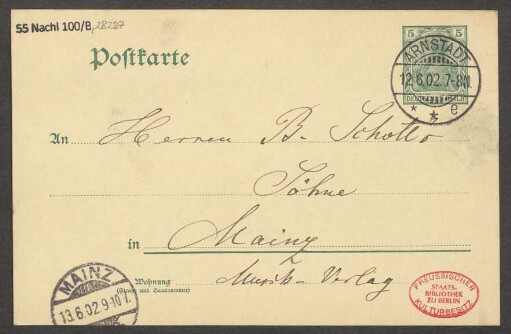 55 Nachl 100/B, 28287
Postkarte
5 5
DEUTSCHES REICH
ARNSTADT
12.6.02.7-8N.
* * e
An Herren B. Schotts
Söhne
in Mainz
Wohnung
(Straße und Hausnummer)
Musik-Verlag
MAINZ
13.6.02.9-10V.
PREUSSISCHER
STAATS-
BIBLIOTHEK
ZU BERLIN
KULTURBESITZ